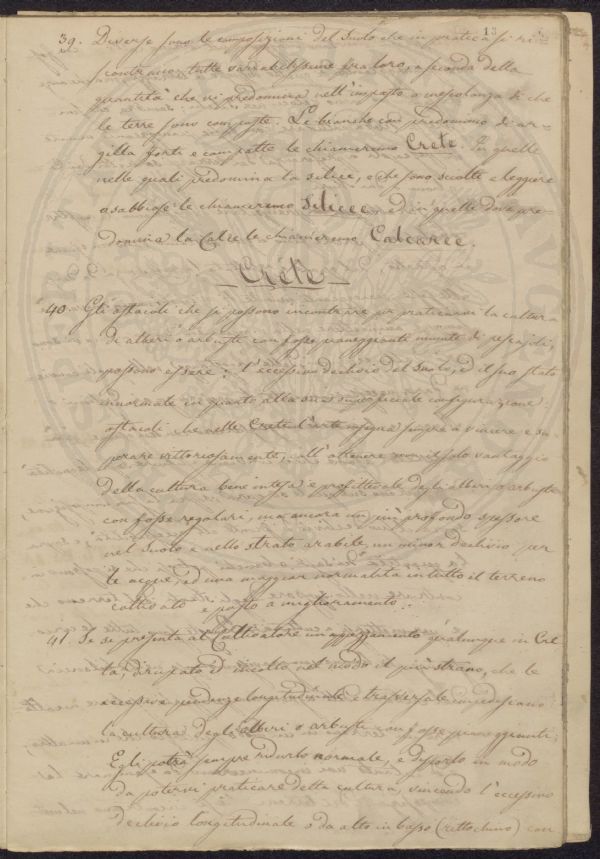 13
39. Diverse sono le composizioni del Suolo che in pratica si ri=
scontrano, tutte variabilissime tra loro, a seconda della
quantità che vi predomina nell'impasto o mescolanza di che
le terre sono composte. Le bianche con predominio di ar=
gilla forti e compatte le chiameremo Crete. In quelle
nelle quali predomina la silice, e che sono sciolte e leggiere
o sabbiose le chiameremo Silicee ed in quelle dove pre=
domina la Calce le chiameremo Calcaree.
Crete
40. Gli ostacoli che si possono incontrare per praticarvi la cultura
di alberi o arbusti con fosse pianeggianti munite di
possono essere: l'eccessivo declivio del Suolo, ed il suo stato
innormale in quanto alla sua superficiale configurazione
ostacoli che nelle Crete l'arte insegna sempre a vincere e su=
perare vittoriosamente, coll'ottenere non il solo vantaggio
della cultura bene intesa e profittevole degli alberi o arbusti
con fosse regolari, ma ancora un più profondo spessore
nel Suolo e nello strato arabile, un minor declivio per
le acque, ed una maggior normalità in tutto il terreno
coltivato e posto a miglioramento.
41. Se si presenta al Coltivatore un appezzamento qualunque in Cre=
ta, dirupato ed incolto nel modo il più strano, che le
eccessive pendenze longitudinale e trasversale impediscano
la cultura degli alberi o arbusti con fosse pianeggianti;
Egli potrà sempre ridurlo normale, e disporlo in modo
da potervi praticare della cultura, vincendo l'eccessivo
declivio longitudinale o da alto in basso (rittochino) con